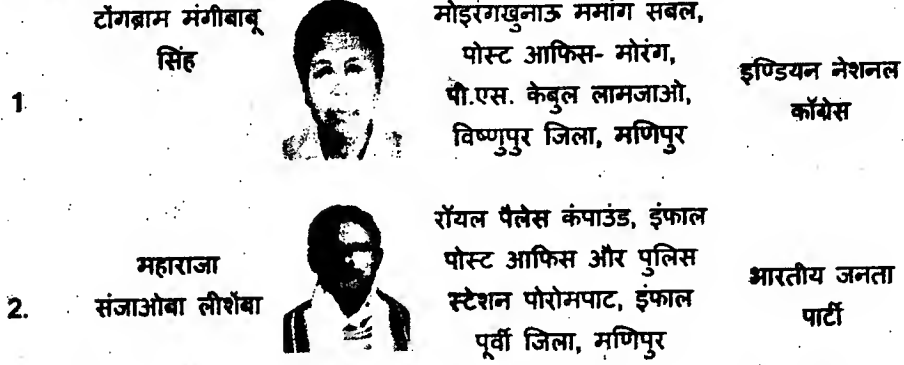 1
टोंगब्राम मंगीबाबू
सिंह
मोइरंगखुनाऊ ममांग सबल,
पोस्ट आफिस- मोरंग,
पी.एस. केबुल लामजाओ,
विष्णुपुर जिला, मणिपुर
इण्डियन नेशनल
कॉंग्रेस
2.
महाराजा
संजाओबा लीशेंबा
रॉयल पैलेस कंपाउंड, इंफाल
पोस्ट आफिस और पुलिस
स्टेशन पोरोमपाट, इंफाल
पूर्वी जिला, मणिपुर
भारतीय जनता
पार्टी